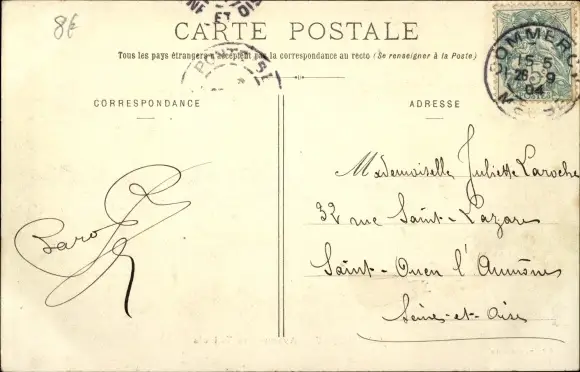 8€
CARTE POSTALE
Tous les pays étrangers n'acceptent pas la correspondance au recto (Se renseigner à la Poste)
ET OIS
PONTOISE
COMMERCY
15-5
28-9
04
CORRESPONDANCE
ADRESSE
Mademoiselle Juliette Laroche
32 rue Saint-Lazare
Saint-Ouen l'Aumône
Seine-et-Oise